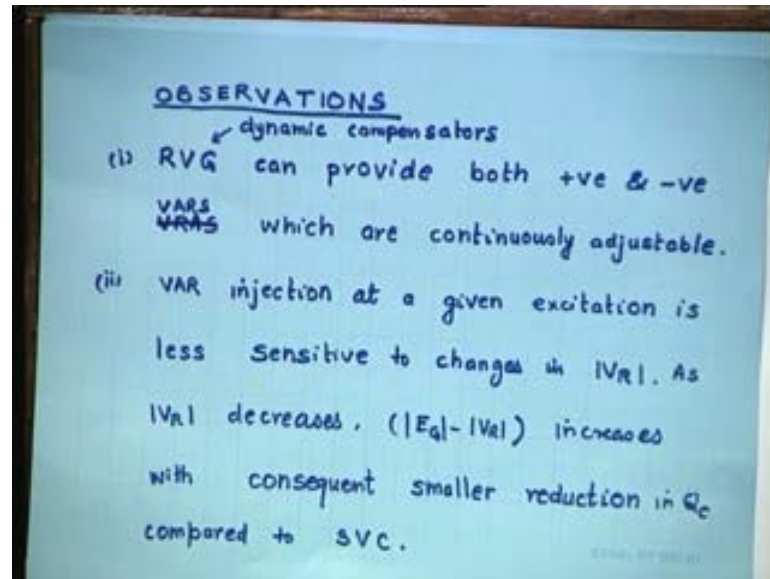 OBSERVATIONS
dynamic compensators
(i) RVG can provide both +ve & -ve
VARS
VRAS which are continuously adjustable.
(ii) VAR injection at a given excitation is
less sensitive to changes in |VR|. As
|VR| decreases, (|EG|-|VR|) increases
with consequent smaller reduction in Qc
compared to SVC.